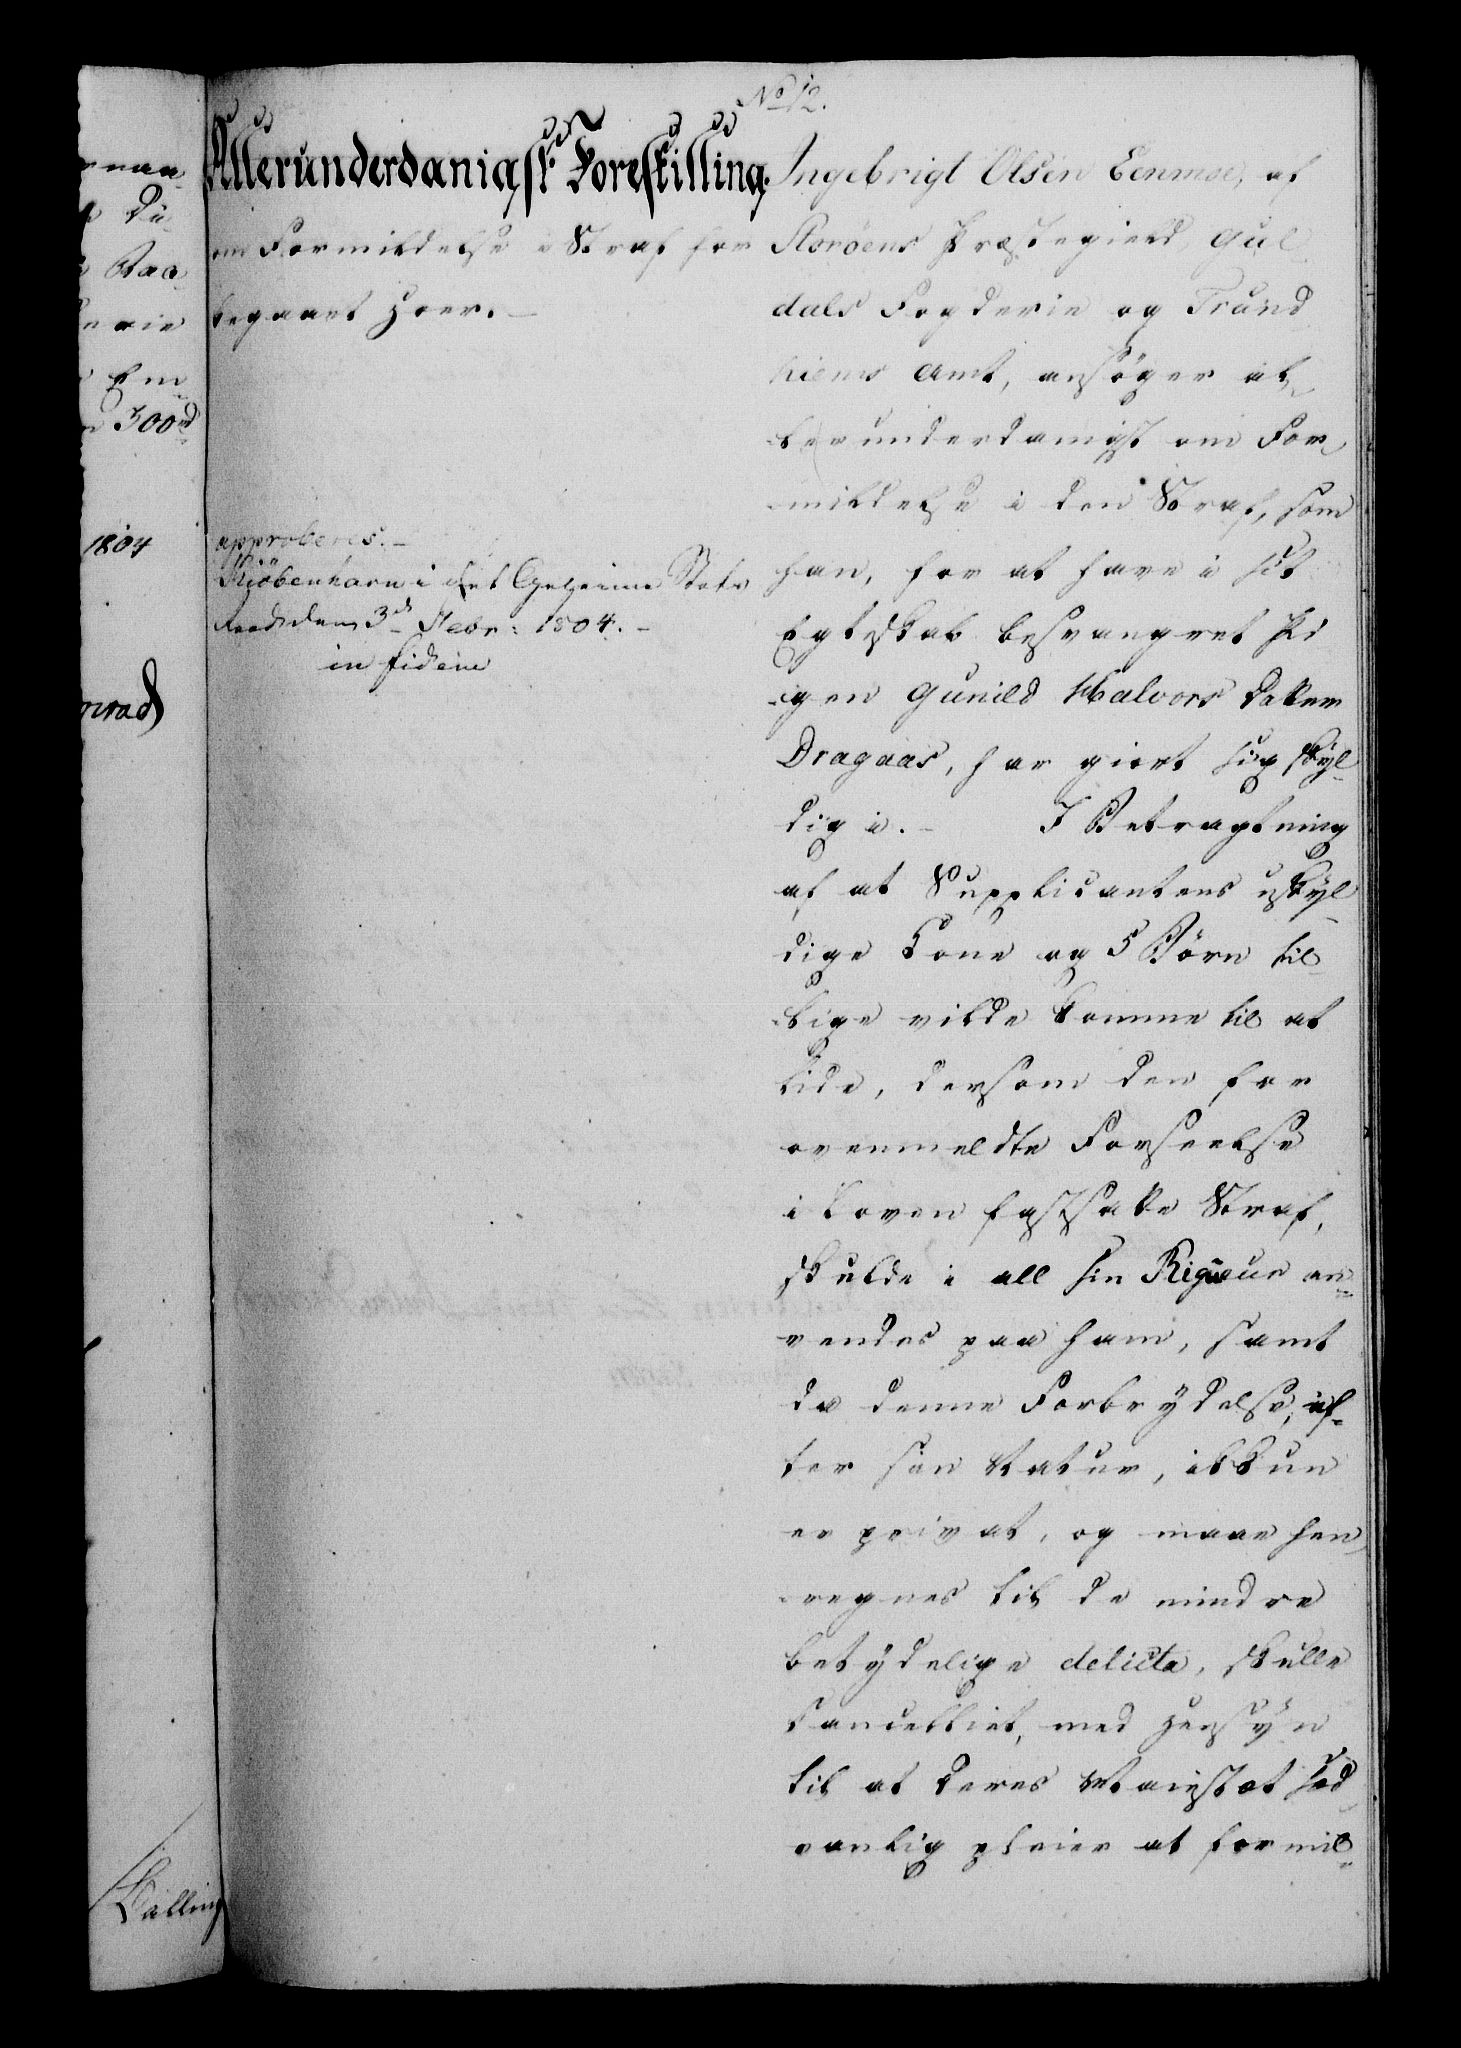 No 12.
Allerunderdanigst Forestilling
om Formildelse i Straf for
begaaet Hoer. –
approberes. –
Kiöbenhavn i det Geheime Stats
Raad den 3d Febr: 1804. –
in fidem
Ingebrigt Olsen Eenmoe, af
Storöens Præstegield, Gul
dals Fogderie og Trund
hiems Amt, ansöger al
lerunderdanigst om For
mildelse i den Straf, som
han, for at have i sit
Egteskab besvangret Pi
gen Gunild Halvors Datter
Dragaas, har giort sig skyl
dig i. – I Betragtning
af at Supplicantens uskyl
dige Kone og 5 Börn til
lige vilde komme til at
lide, dersom den for
ovenmeldte Forseelse
i Loven fastsatte Straf,
skulde i all sin Rigueur an
vendes paa ham, samt
da denne Forbrydelse, ef
ter sin Natur, ikkun
er privat, og maae hen
regnes til de mindre
betydelige delicta, skulle
Cancelliet, med Hensyn
til at Deres Maiestæt sæd
vanlig pleier at formil
1804
300rd
Em
Du
Malling